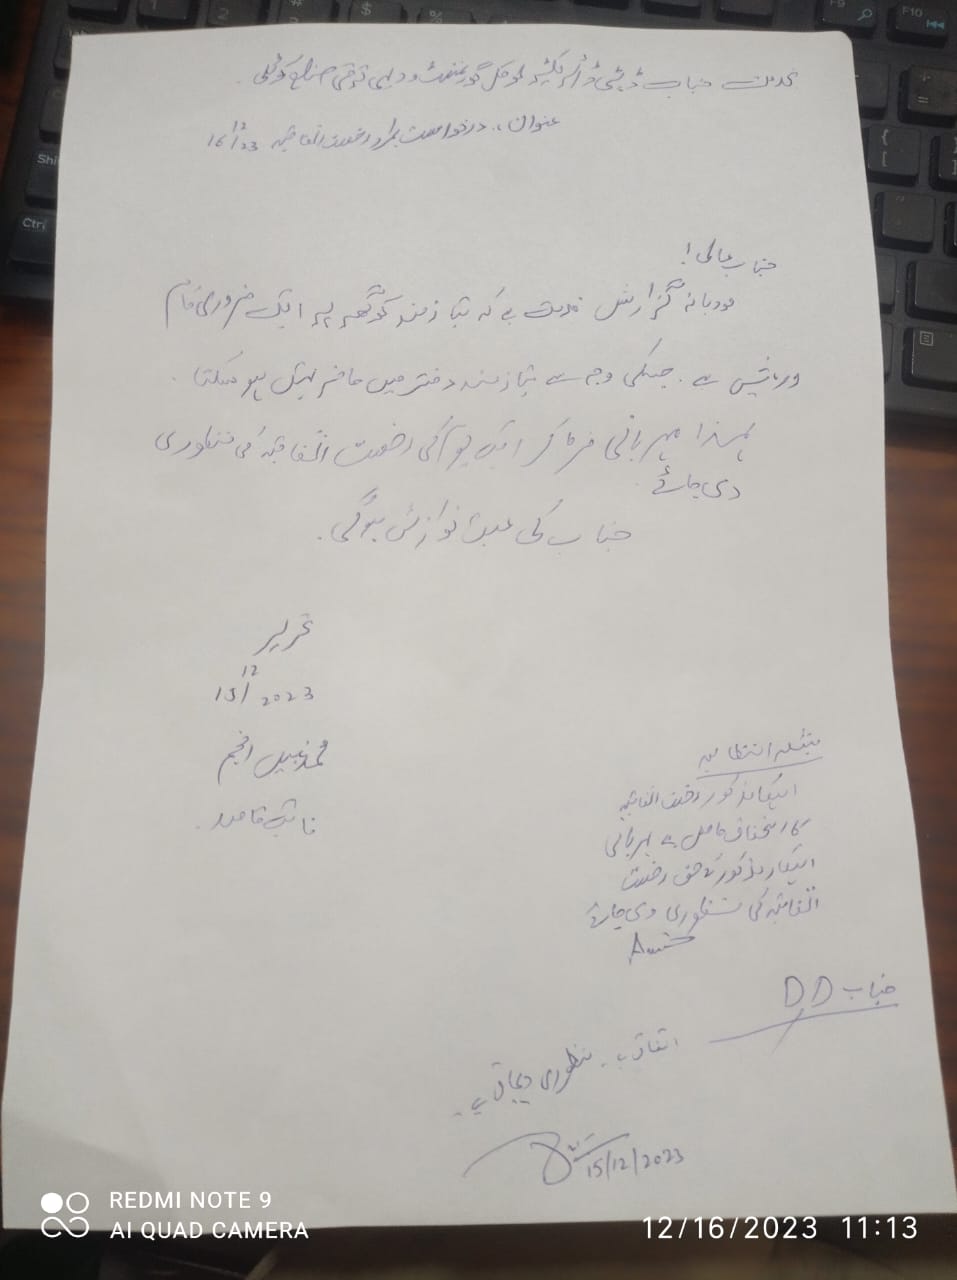 بخدمت جناب ڈپٹی ڈائریکٹر لوکل گورنمنٹ و دیہی ترقی ضلع کوٹلی
عنوان:۔ درخواست بمراد رخصت اتفاقیہ 16/12/23
جناب عالی!
مودبانہ گزارش خدمت ہے کہ نیازمند کو گھر پر ایک ضروری کام
درپیش ہے۔ جسکی وجہ سے نیازمند دفتر میں حاضر نہیں ہو سکتا۔
لہذا مہربانی فرما کر ایک یوم کی رخصت اتفاقیہ کی منظوری
دی جائے۔
جناب کی عین نوازش ہوگی۔
تحریر
15/12/2023
محمد نبیل انجم
نائب قاصد۔
انتظامیہ
اہلکار مذکور رخصت اتفاقیہ
کا استحقاق حامل ہے مہربانی
اہلکار مذکور کے حق رخصت
اتفاقیہ کی منظوری دی جائے
جناب DD
اتفاق ہے۔ منظوری دی جاتی ہے۔
15/12/2023
REDMI NOTE 9
AI QUAD CAMERA
12/16/2023 11:13